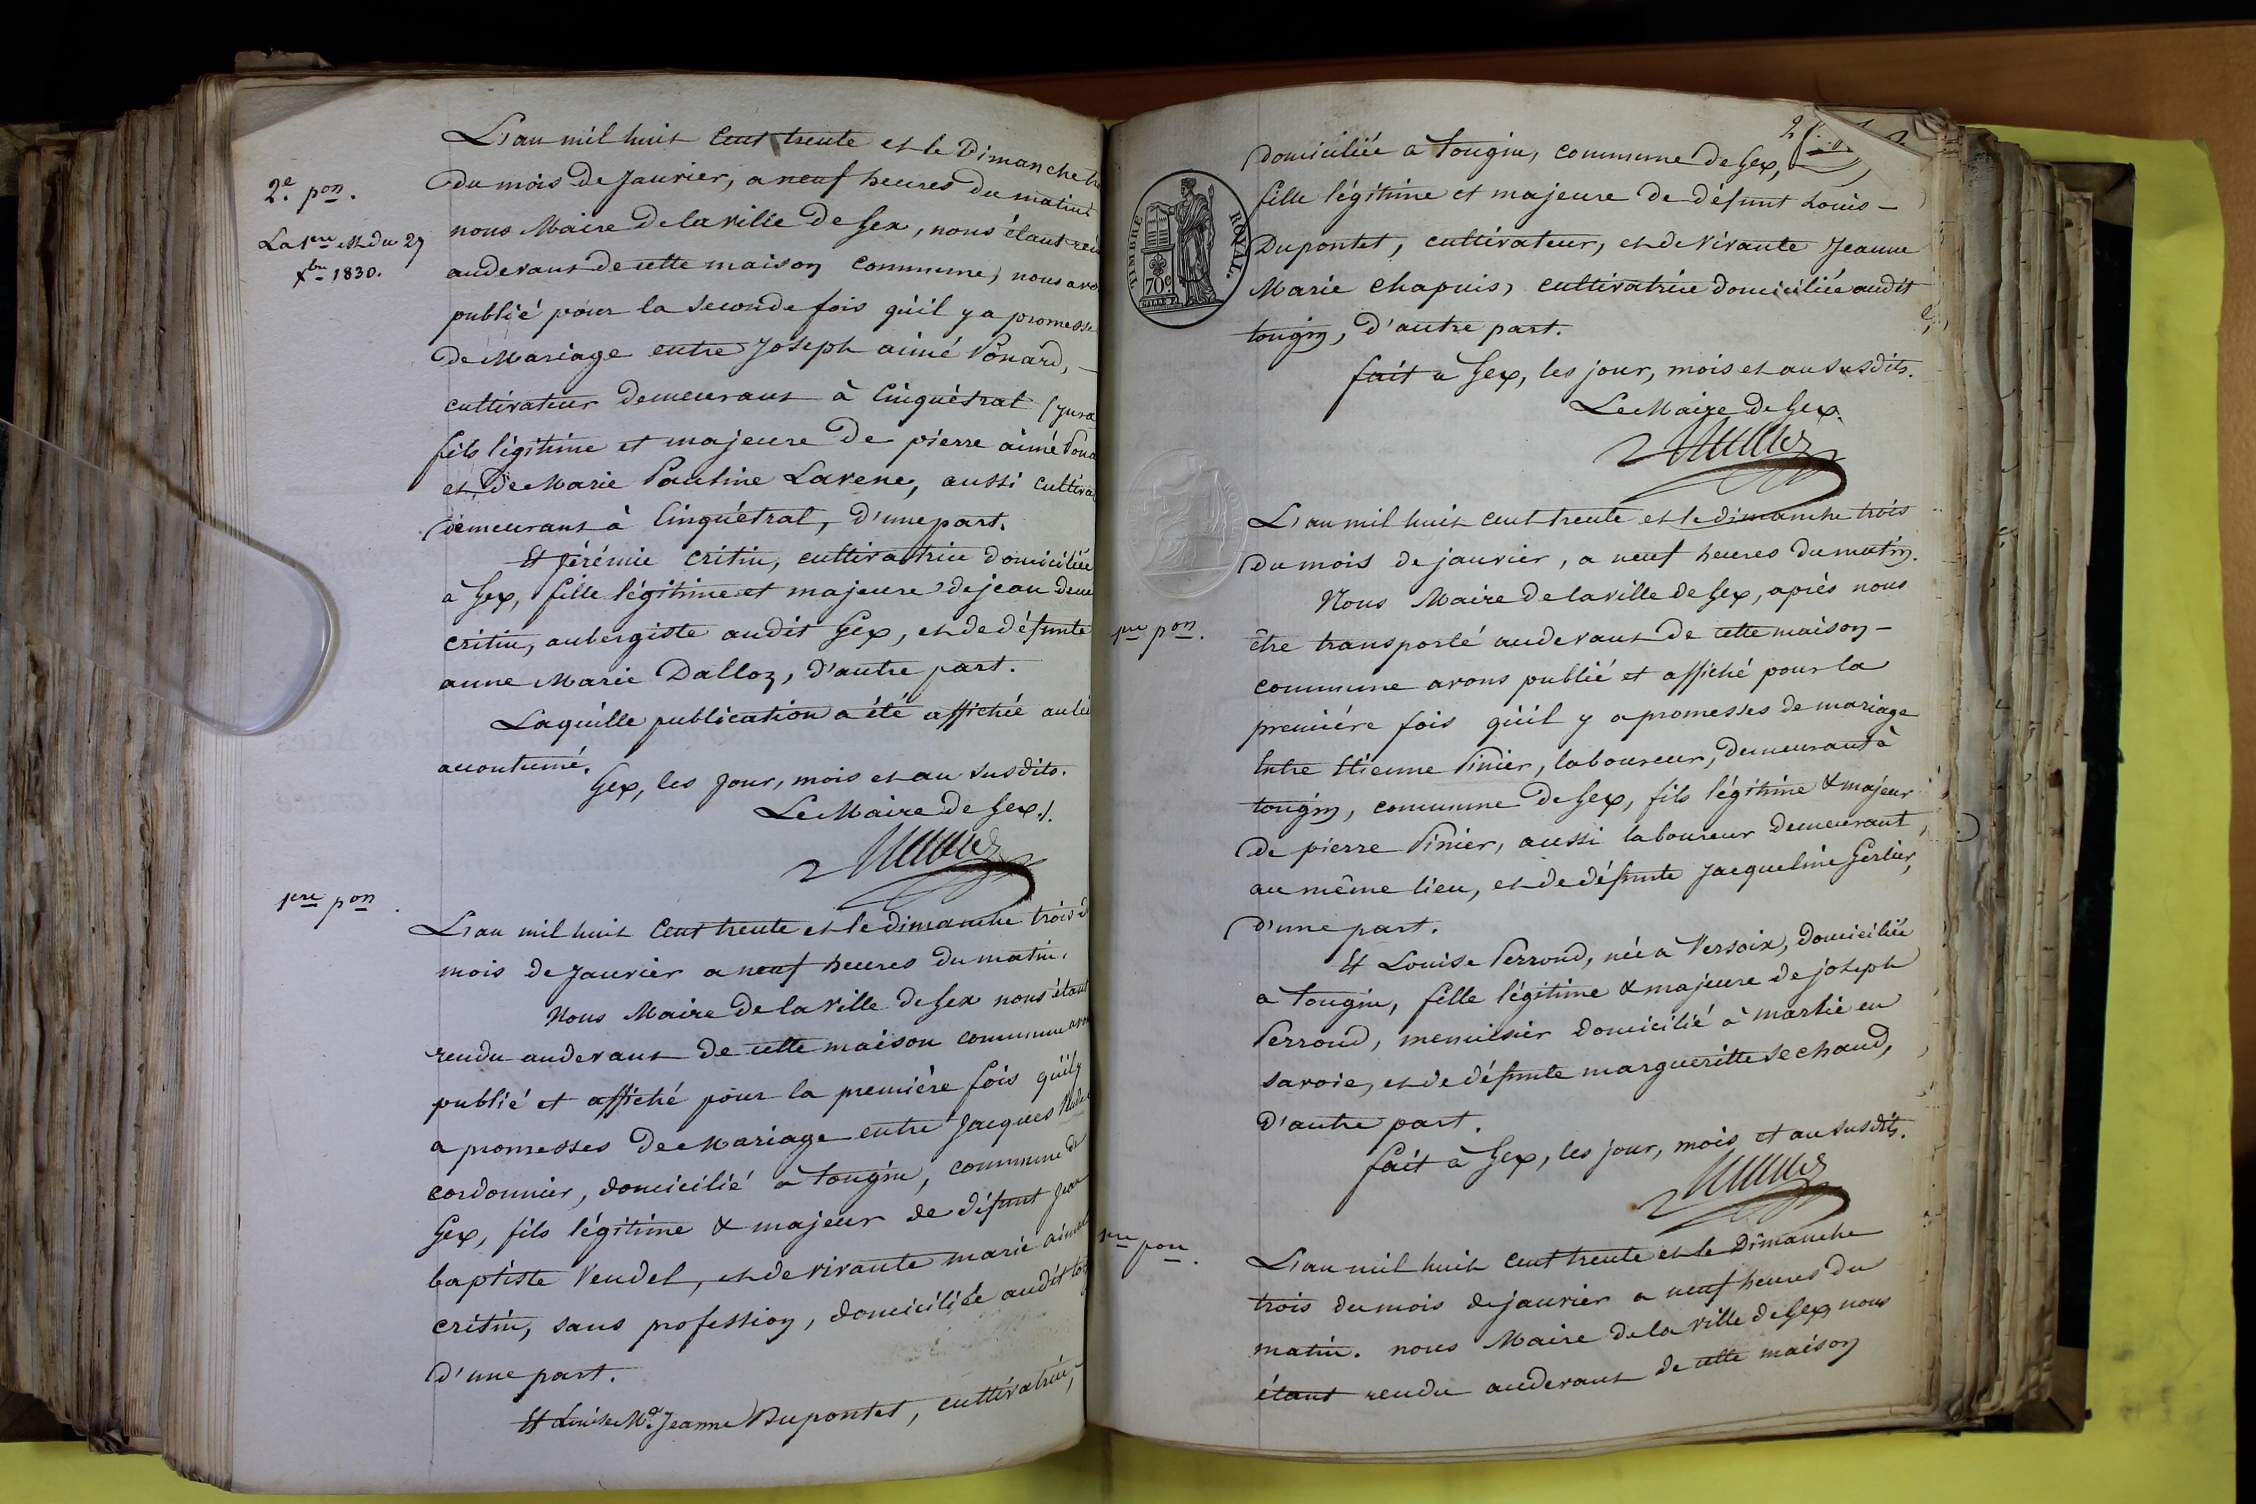 2e. pon.
La 1ere est du 27
Xbre 1830.
L'an mil huit cent trente et le Dimanche
du mois de Janvier, a neuf heures du matin
nous Maire de la ville de Gex, nous étant
audevant de cette maison commune, nous avo
publié pour la seconde fois qu'il y a promesse
de Mariage entre Joseph aimé Ponard, –
cultivateur demeurant à Cinquétral (Jura
fils légitime et majeure de pierre aimé Pona
et de Marie Pauline Lavene, aussi cultiva
demeurant à Cinquétral, d'une part.
Et Jérémie critin, cultivatrice domiciliée
a Gex, fille légitime et majeure de jean
critin, aubergiste audit Gex, et de défunte
anne Marie Dalloz, d'autre part.
Laquelle publication a été affichée au lie
accoutumé.
Gex, les Jour, mois et an susdits.
Le Maire de Gex./.
1ere pon.
L'an mil huit cent trente et le dimanche trois d
mois de Janvier a neuf heures du matin.
Nous Maire de la Ville de Gex nous étant
rendu audevant de cette maison commune avo
publié et affiché pour la première fois qu'il y
a promesses de Mariage entre Jacques
cordonnier, domicilié a tougin, commune de
Gex, fils légitime & majeur de défunt Jean
baptiste Vendel, et de vivante marie aimé
critin, sans profession, domiciliée audit to
d'une part.
Et Louise Me. Jeanne Dupontet, cultivatrice,
2
domiciliée a tougin, commune de Gex,
fille légitime et majeure de défunt Louis –
Dupontet, cultivateur, et de vivante Jeanne
Marie Chapuis, cultivatrice domiciliée audit
tougin, d'autre part.
fait a Gex, les jour, mois et an susdits.
Le Maire de Gex.
TIMBRE ROYAL.
70c.
1ere pon.
L'an mil huit cent trente et le dimanche trois
du mois de janvier, a neuf heures du matin.
Nous Maire de la ville de Gex, après nous
être transporté audevant de cette maison –
commune avons publié et affiché pour la
première fois qu'il y a promesses de mariage
Entre Etienne Pinier, laboureur, demeurant à
tougin, commune de Gex, fils légitime & majeur
de pierre Pinier, aussi laboureur demeurant
au même lieu, et de défunte Jacqueline Gerlier,
d'une part.
Et Louise Perroud, née a Versoix, domiciliée
a tougin, fille légitime & majeure de joseph
Perroud, menuisier domicilié à marlie en
savoie, et de défunte margueritte Sechaud,
d'autre part.
fait à Gex, les jour, mois et an susdits.
1ere pon.
L'an mil huit cent trente et le Dimanche
trois du mois de janvier a neuf heures du
matin. nous Maire de la ville de Gex, nous
étant rendu audevant de cette maison